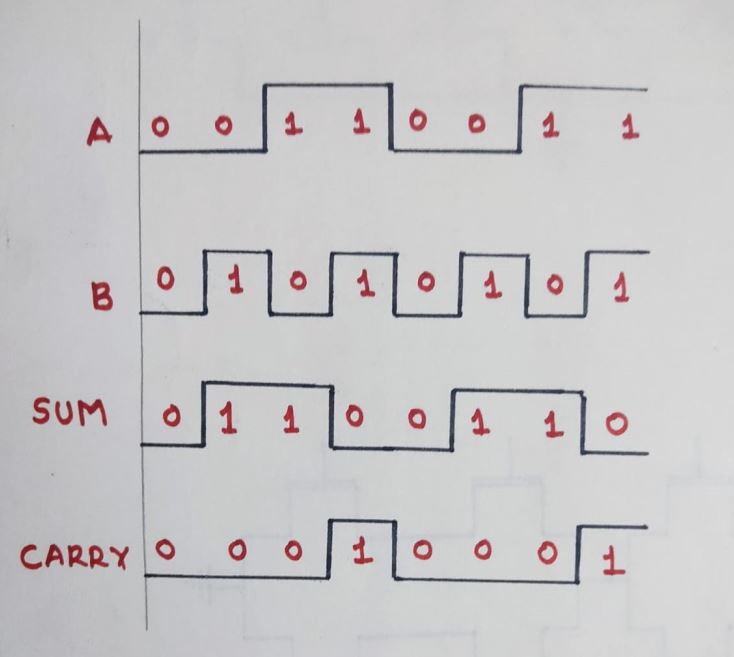 A 0 0 1 1 0 0 1 1
B 0 1 0 1 0 1 0 1
SUM 0 1 1 0 0 1 1 0
CARRY 0 0 0 1 0 0 0 1